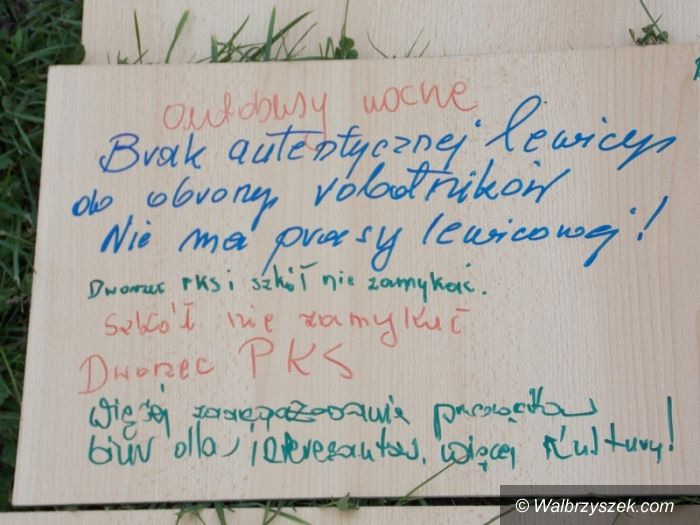 autobusy nocne
Brak autentycznej lewicy
do obrony robotników
Nie ma prasy lewicowej!
Dworzec PKS i szkół nie zamykać.
Szkół nie zamykać
Dworzec PKS
więcej pracowników
biur dla interesantów, więcej kultury!
© Walbrzyszek.com